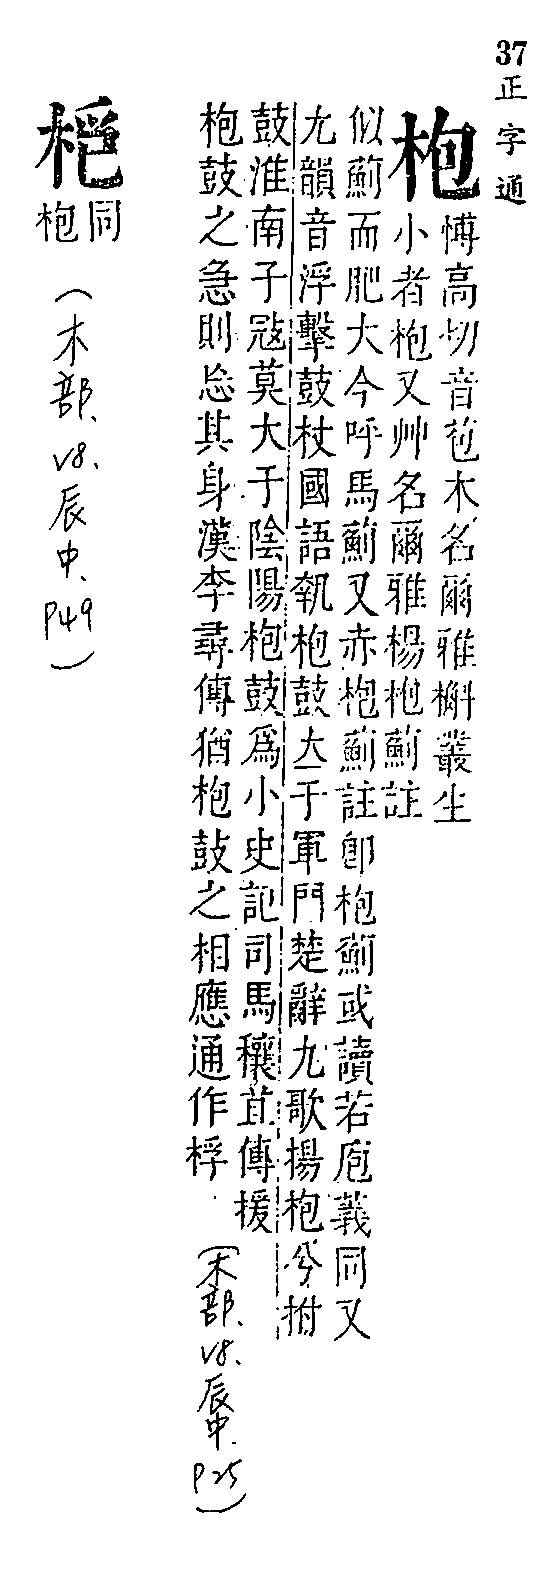 37正字通
枹
愽高切音苞木名爾雅檞叢生
小者枹又艸名爾雅楊枹薊註
似薊而肥大今呼馬薊又赤枹薊註卽枹薊或讀若庖義同又
尤韻音浮擊鼓杖國語執枹鼓立于軍門楚辭九歌揚枹兮拊
鼓淮南子寇莫大于陰陽枹鼓爲小史記司馬穰苴傳援
枹鼓之急則忘其身漢李尋傳猶枹鼓之相應通作桴
(木部、V8、辰中、P25)
同
枹
(木部、V8、辰中、P49)